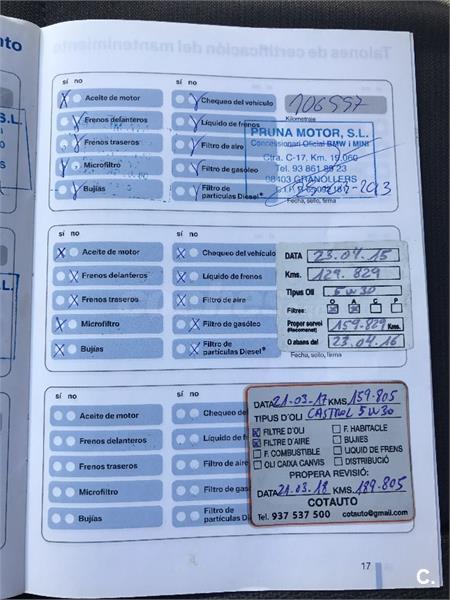 Talones de certificación del mantenimiento
sí no
sí no
Aceite de motor
Chequeo del vehículo
106597
Kilometraje
Frenos delanteros
Líquido de frenos
PRUNA MOTOR, S.L.
Concessionari Oficial BMW i MINI
Frenos traseros
Filtro de aire
Ctra. C-17, Km. 19.060
Tel. 93 861 89 23
Microfiltro
Filtro de gasóleo
08403 GRANOLLERS
Bujías
Filtro de
partículas Diesel*
Fecha, sello, firma
sí no
sí no
Aceite de motor
Chequeo del vehículo
Frenos delanteros
Líquido de frenos
Frenos traseros
Filtro de aire
Microfiltro
Filtro de gasóleo
Bujías
Filtro de
partículas Diesel*
Fecha, sello, firma
DATA 23.04.15
Kms. 129.829
Tipus Oli 5W30
O A C P
Filtres:
Proper servei 159.829 Kms.
(Recomanat)
O abans del 23.04.16
sí no
sí no
Aceite de motor
Chequeo del
Frenos delanteros
Líquido de f
Frenos traseros
Filtro de aire
Microfiltro
Filtro de gas
Bujías
Filtro de
partículas D
DATA 21-03-17 KMS. 159.805
TIPUS D'OLI CASTROL 5W30
FILTRE D'OLI
F. HABITACLE
FILTRE D'AIRE
BUJIES
F. COMBUSTIBLE
LIQUID DE FRENS
OLI CAIXA CANVIS
DISTRIBUCIÓ
PROPERA REVISIÓ:
DATA 21-03-18 KMS. 189.805
COTAUTO
Tel. 937 537 500 cotauto@gmail.com
17
C.